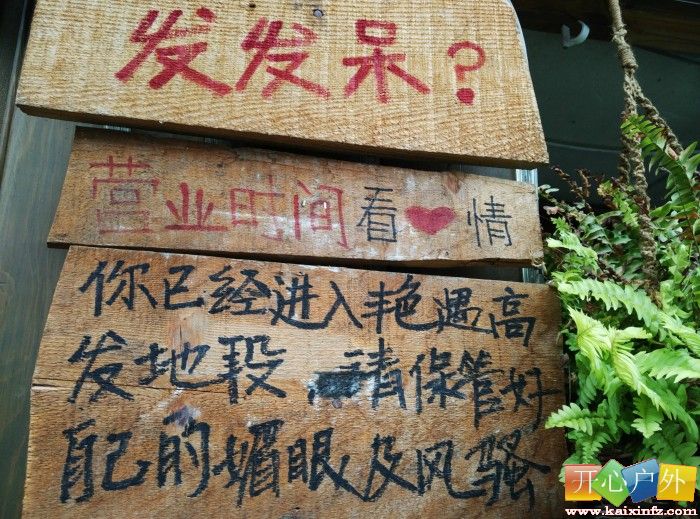 发发呆?
营业时间看❤情
你已经进入艳遇高
发地段,请保管好
自己的媚眼及风骚
开心户外
www.kaixinfz.com